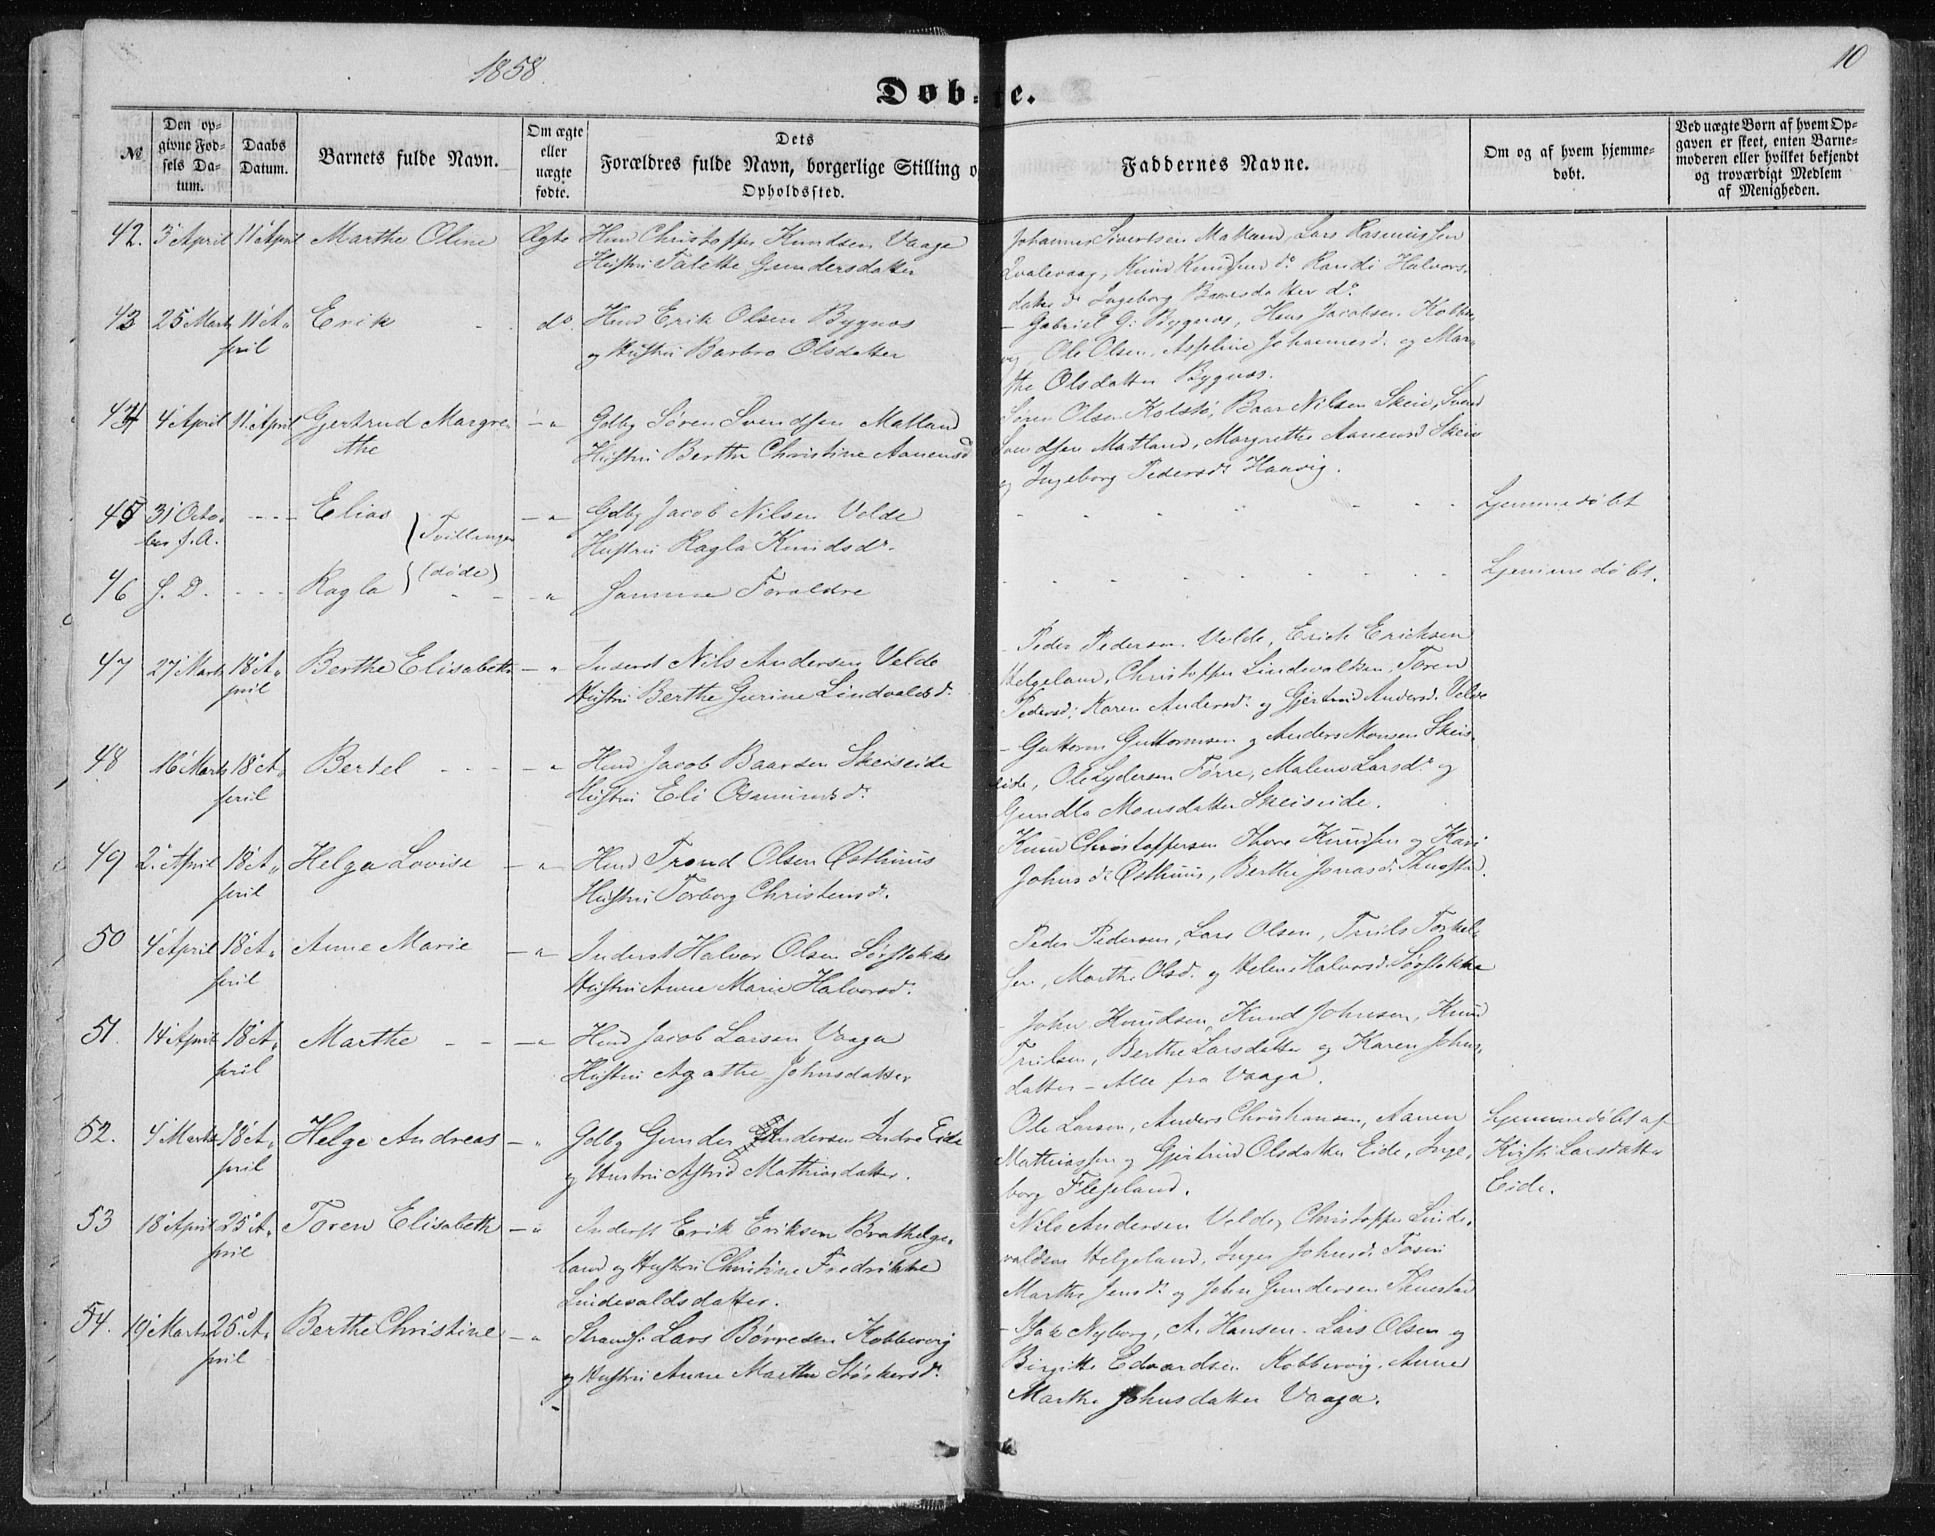 1858.
10
Døbte.
№
Den op-
givne Fød-
sels Da-
tum.
Daabs
Datum.
Barnets fulde Navn.
Om ægte
eller
uægte
fødte.
Dets
Forældres fulde Navn, borgerlige Stilling o
Opholdssted.
Faddernes Navne.
Om og af hvem hjemme-
døbt.
Ved uægte Børn af hvem Op-
gaven er skeet, enten Barne-
moderen eller hvilket bekjendt
og troværdigt Medlem
af Menigheden.
42. 3 April 11 April Marthe Oline Ægte Huusmd Christopher Knudsen Vaage
Hustru Talette Gundersdatter
Johannes Sivertsen Matland, Lars Rasmussen
Qvalevaag, Knud Knudsen do. Randi Halvors-
datter do Ingeborg Baarsdatter do.
43 25 Marts 11 A-
pril
Erik do. Huusmd Erik Olsen Bygnæs
og Hustru Barbro Olsdatter
- Gabriel G. Bygnæs, Hans Jacobsen Kobber-
vig Ole Olsen, Aspeline Johannesd. og Mar-
the Olsdatter Bygnæs.
44 4 April 11 April Gjertrud Margre-
the
- " Gdbr Søren Svendsen Matland
Hustru Berthe Christine Aanensd
Søren Olsen Kolstø, Baar Nilsen Skeie, Svend
Svendsen Matland, Margrethe Aanensd Skeie
og Ingeborg Pedersdr Haavig.
45 31 Octo-
ber f. A.
Elias Tvillinger - " Gdbr Jacob Nilsen Velde
Hustru Ragla Knudsdr.
hjemmedøbt
46 S. D. Ragla (døde) " Samme Forældre
hjemmedøbt.
47 27 Marts 18 A-
pril
Berthe Elisabeth - " Inderst Nils Andersen Velde
Hustru Berthe Gurine Lindvaldsd.
- Peder Pedersen Velde, Erich Erichsen
Helgeland, Christopher Lindevaldsen, Toren
Pedersd, Karen Andersd. og Gjertrud Andersd. Velde
48 16 Marts 18 A-
pril
Bertel - " Huusmd Jacob Baardsen Skeiseide
Hustru Eli Osmundsd.
- Guttorm Guttormsen og Anders Monsen Skeis-
eide, Ole Lydersen Førre, Malene Larsdr og
Gundla Monsdatter Skeiseide.
49 2 April 18 A-
pril
Helga Lovise - " Huusmd Trond Olsen Østhuus
Hustru Torborg Christensd.
Knud Christoffersen Thore Knudsen og Kari
Johnsdr Østhuus, Berthe Jonasd. Thuestad.
50 4 April 18 A-
pril
Anne Marie - " Inderst Halvor Olsen Sørstokke
Hustru Anne Marie Halvorsd.
Peder Pedersen, Lars Olsen, Truls Torkel-
sen, Marthe Olsd. og Helene Halvorsd. Sørstokke
51. 14 April 18 A-
pril
Marthe - " Huusmd Jacob Larsen Vaaga
Hustru Agathe Johnsdatter
- John Knudsen, Knud Johnsen, Knud
Trulsen, Berthe Larsdatter og Karen Johns-
datter - Alle fra Vaaga.
52. 4 Marts 18 A-
pril
Helge Andreas - " Gdbr Gunder Andersen Indre Eide
og Hustru Astrid Mathiasdatter.
Ole Larsen, Anders Christiansen, Aanen
Mathiassen og Gjertrud Olsdatter Eide, Inge-
borg Flesjeland.
hjemmedøbt af
Kirsti Larsdatter
Eide.
53 18 April 25 A-
pril
Toren Elisabeth - " Inderst Erik Eriksen Brathelge-
land og Hustru Christine Fredrikke
Lindevaldsdatter.
Nils Andersen Velde, Christopher Linde-
valdsen Helgeland, Inger Johnsd. Tosen
Marthe Jensd. og John Gundersen Thuestad
54. 19 Marts 25 A-
pril
Berthe Christine - " Strands. Lars Børresen Kobbervig
og Hustru Anne Marthe Størkersdr.
- Isak Nyborg, A. Hansen. Lars Olsen og
Birgitte Edvardsen Kobbervig. Anne
Marthe Johnsdatter Vaaga.